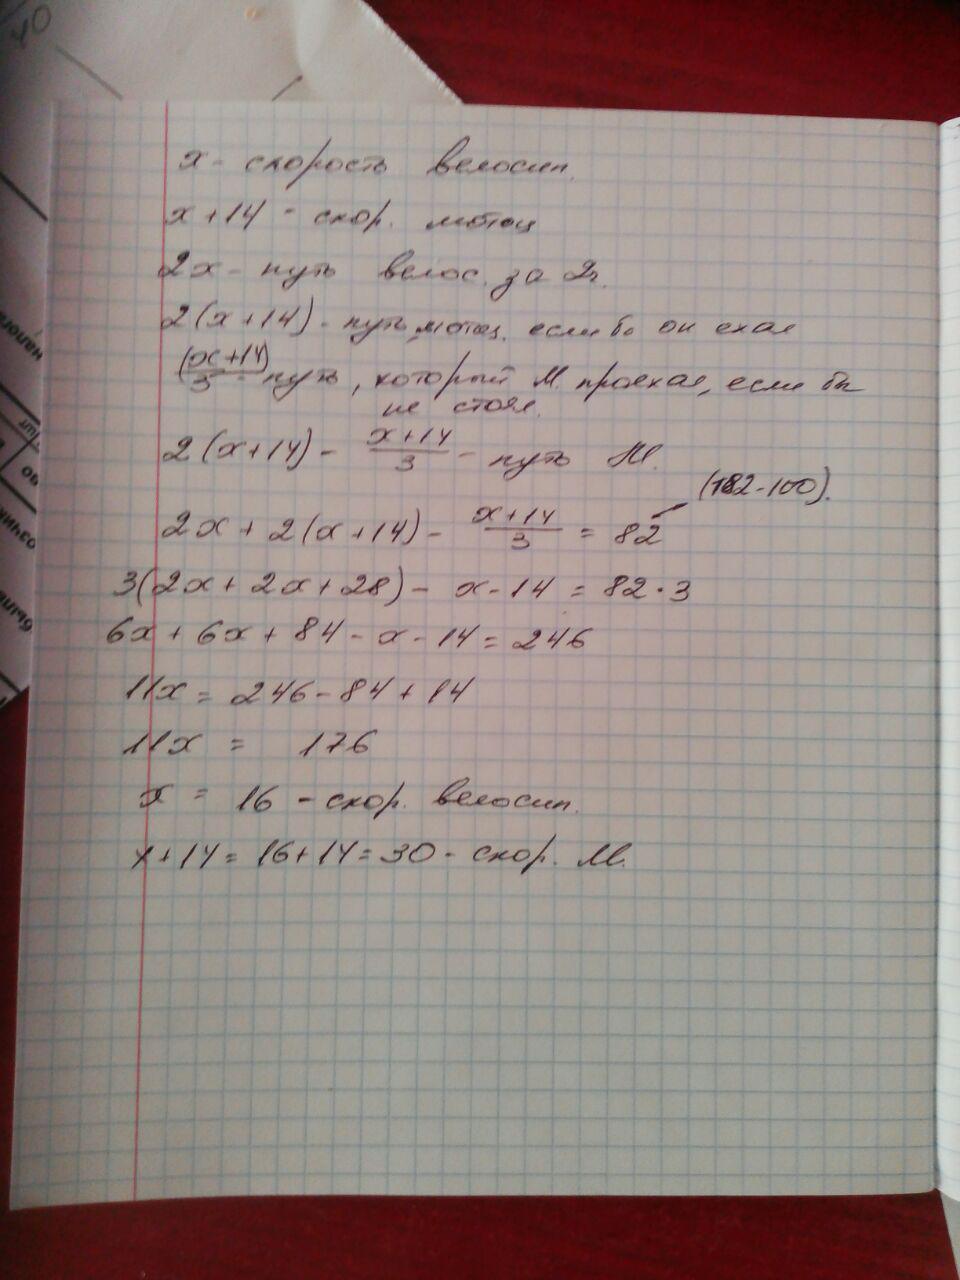 40
x - скорость велосип.
x + 14 - скор. мотоц
2x - путь велос. за 2ч.
2(x + 14) - путь мотоц. если бы он ехал
(x + 14)/3 - путь, который М. проехал, если бы
не стоял.
2(x + 14) - (x + 14)/3 - путь М.
(182 - 100).
2x + 2(x + 14) - (x + 14)/3 = 82
3(2x + 2x + 28) - x - 14 = 82 · 3
6x + 6x + 84 - x - 14 = 246
11x = 246 - 84 + 14
11x = 176
x = 16 - скор. велосип.
x + 14 = 16 + 14 = 30 - скор. М.